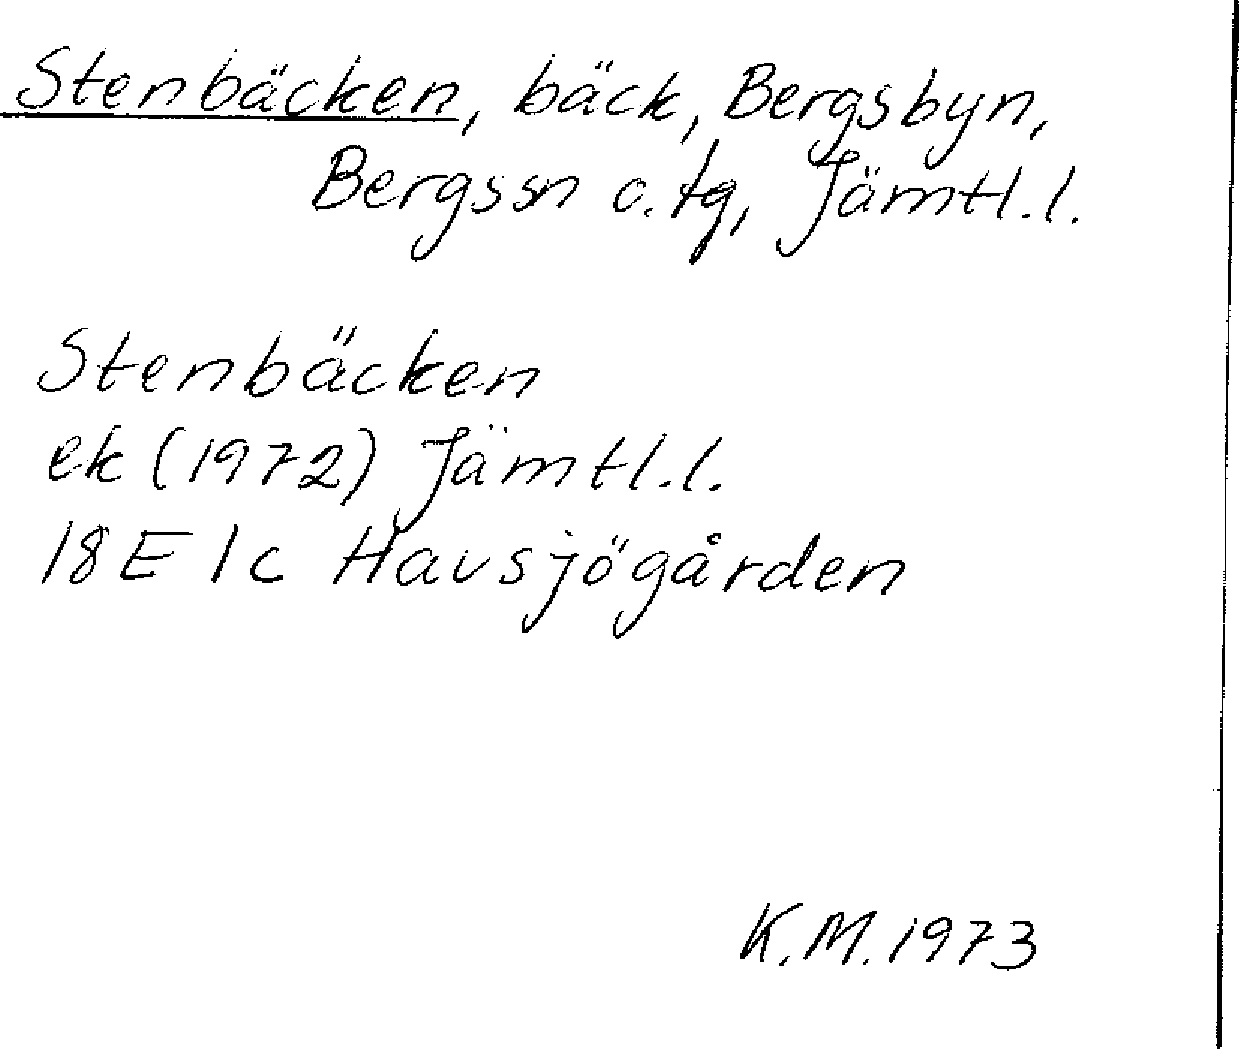 Stenbäcken, bäck, Bergsbyn,
Bergssn o. tg, Jämtl.l.
Stenbäcken
ek (1972) Jämtl.l.
18E 1c Havsjögården
K.M. 1973